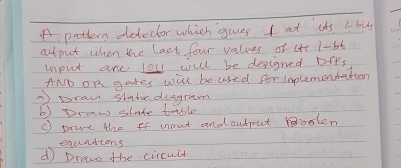 A pattern detector which gives 1 at its 1-bit
output when the last four values of its 1-bit
input are 1011 will be designed. Dffs,
AND OR gates will be used for implementation
a) Draw state diagram
b) Draw state table
c) Drive the ff input and output Boolen
equations
d) Draw the circuit